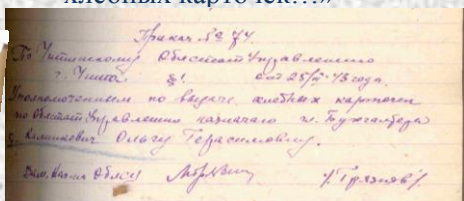 хлебных карточек...»
Приказ № 74.
По Читинскому Облстат Управлению
г. Чита § 1 от 25/II-43 года.
Уполномоченным по выдаче хлебных карточек
по Облстат Управлению назначаю гл. Бухгалтера
Ольгу Герасимовну.
Зам.